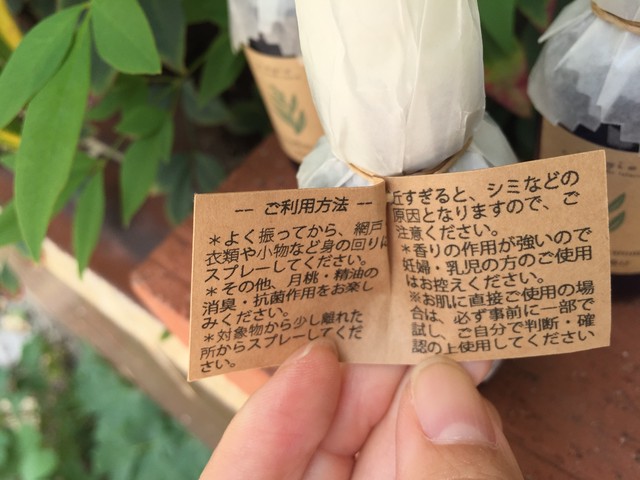 -- ご利用方法 --
＊よく振ってから、網戸
衣類や小物など身の回りに
スプレーしてください。
＊その他、月桃・精油の
消臭・抗菌作用をお楽し
みください。
＊対象物から少し離れた
所からスプレーしてくだ
さい。
近すぎると、シミなどの
原因となりますので、ご
注意ください。
＊香りの作用が強いので
妊婦・乳児の方のご使用
はお控えください。
※お肌に直接ご使用の場
合は、必ず事前に一部で
試し、ご自分で判断・確
認の上使用してください